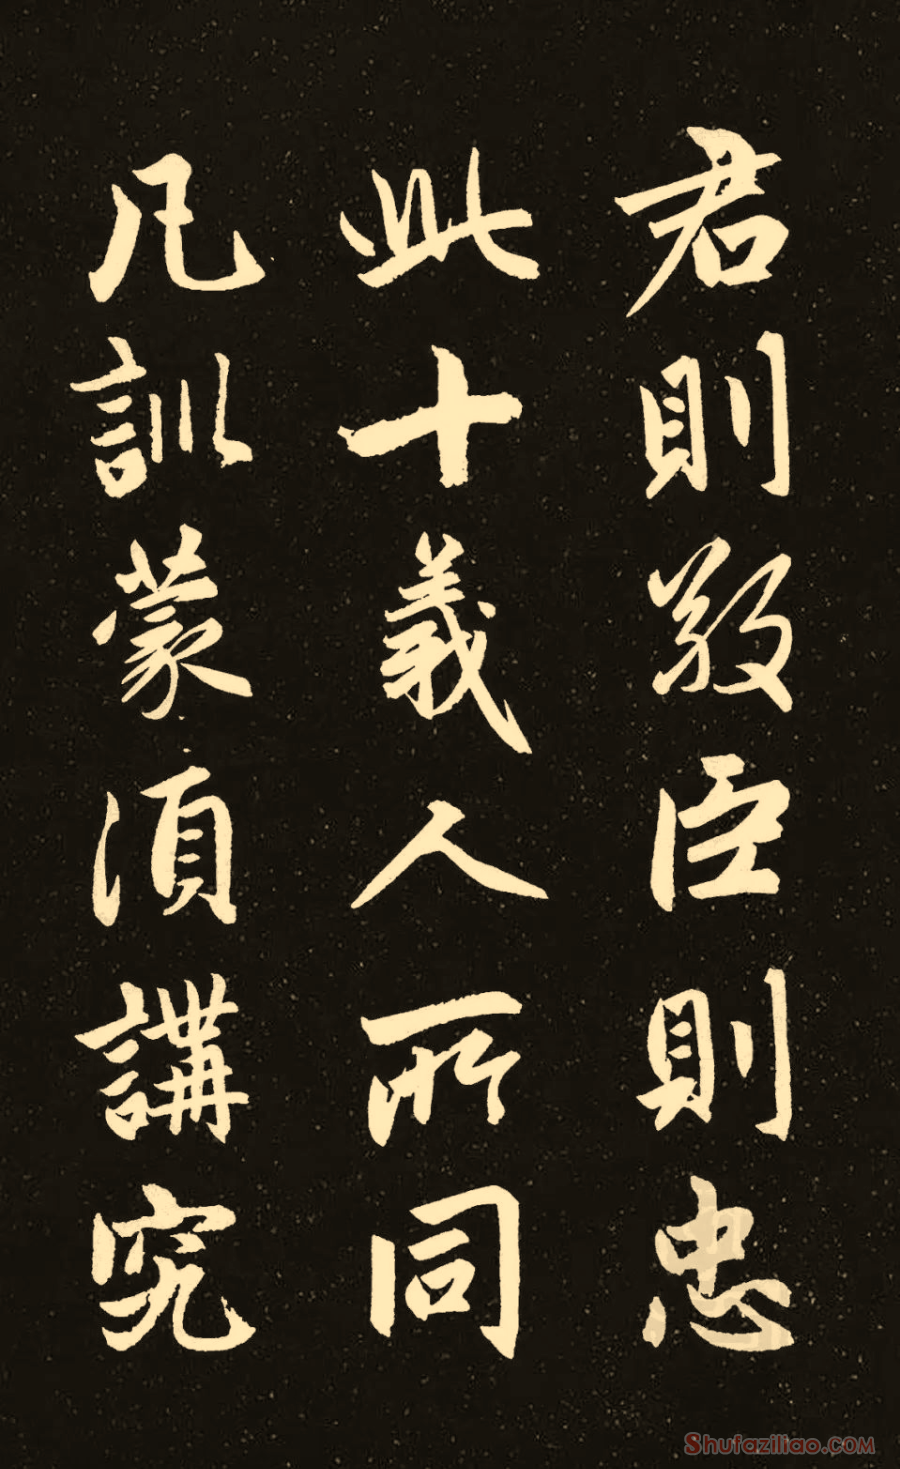 君則敬臣則忠
此十義人所同
凡訓蒙須講究
Shufaziliao.COM